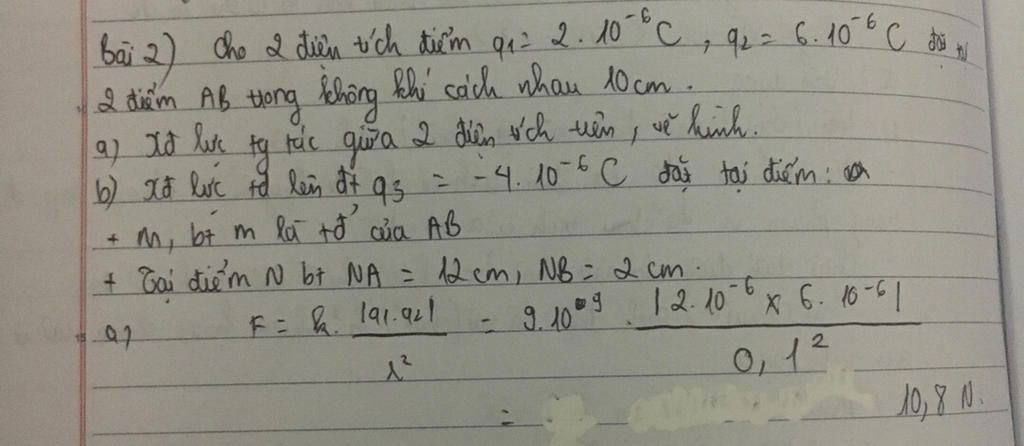 Bài 2) Cho 2 điện tích điểm q1 = 2.10⁻⁶ C, q2 = 6.10⁻⁶ C đặt tại
2 điểm AB trong không khí cách nhau 10cm.
a) Xđ lực tg tác giữa 2 điện tích trên, vẽ hình.
b) Xđ lực tđ lên đt q3 = -4.10⁻⁶ C đặt tại điểm:
+ M, bt m là tđ của AB
+ Tại điểm N bt NA = 12cm, NB = 2cm.
a) F = k. |q1.q2| / r² = 9.10⁹ . |2.10⁻⁶ x 6.10⁻⁶| / 0,1²
= 10,8 N.